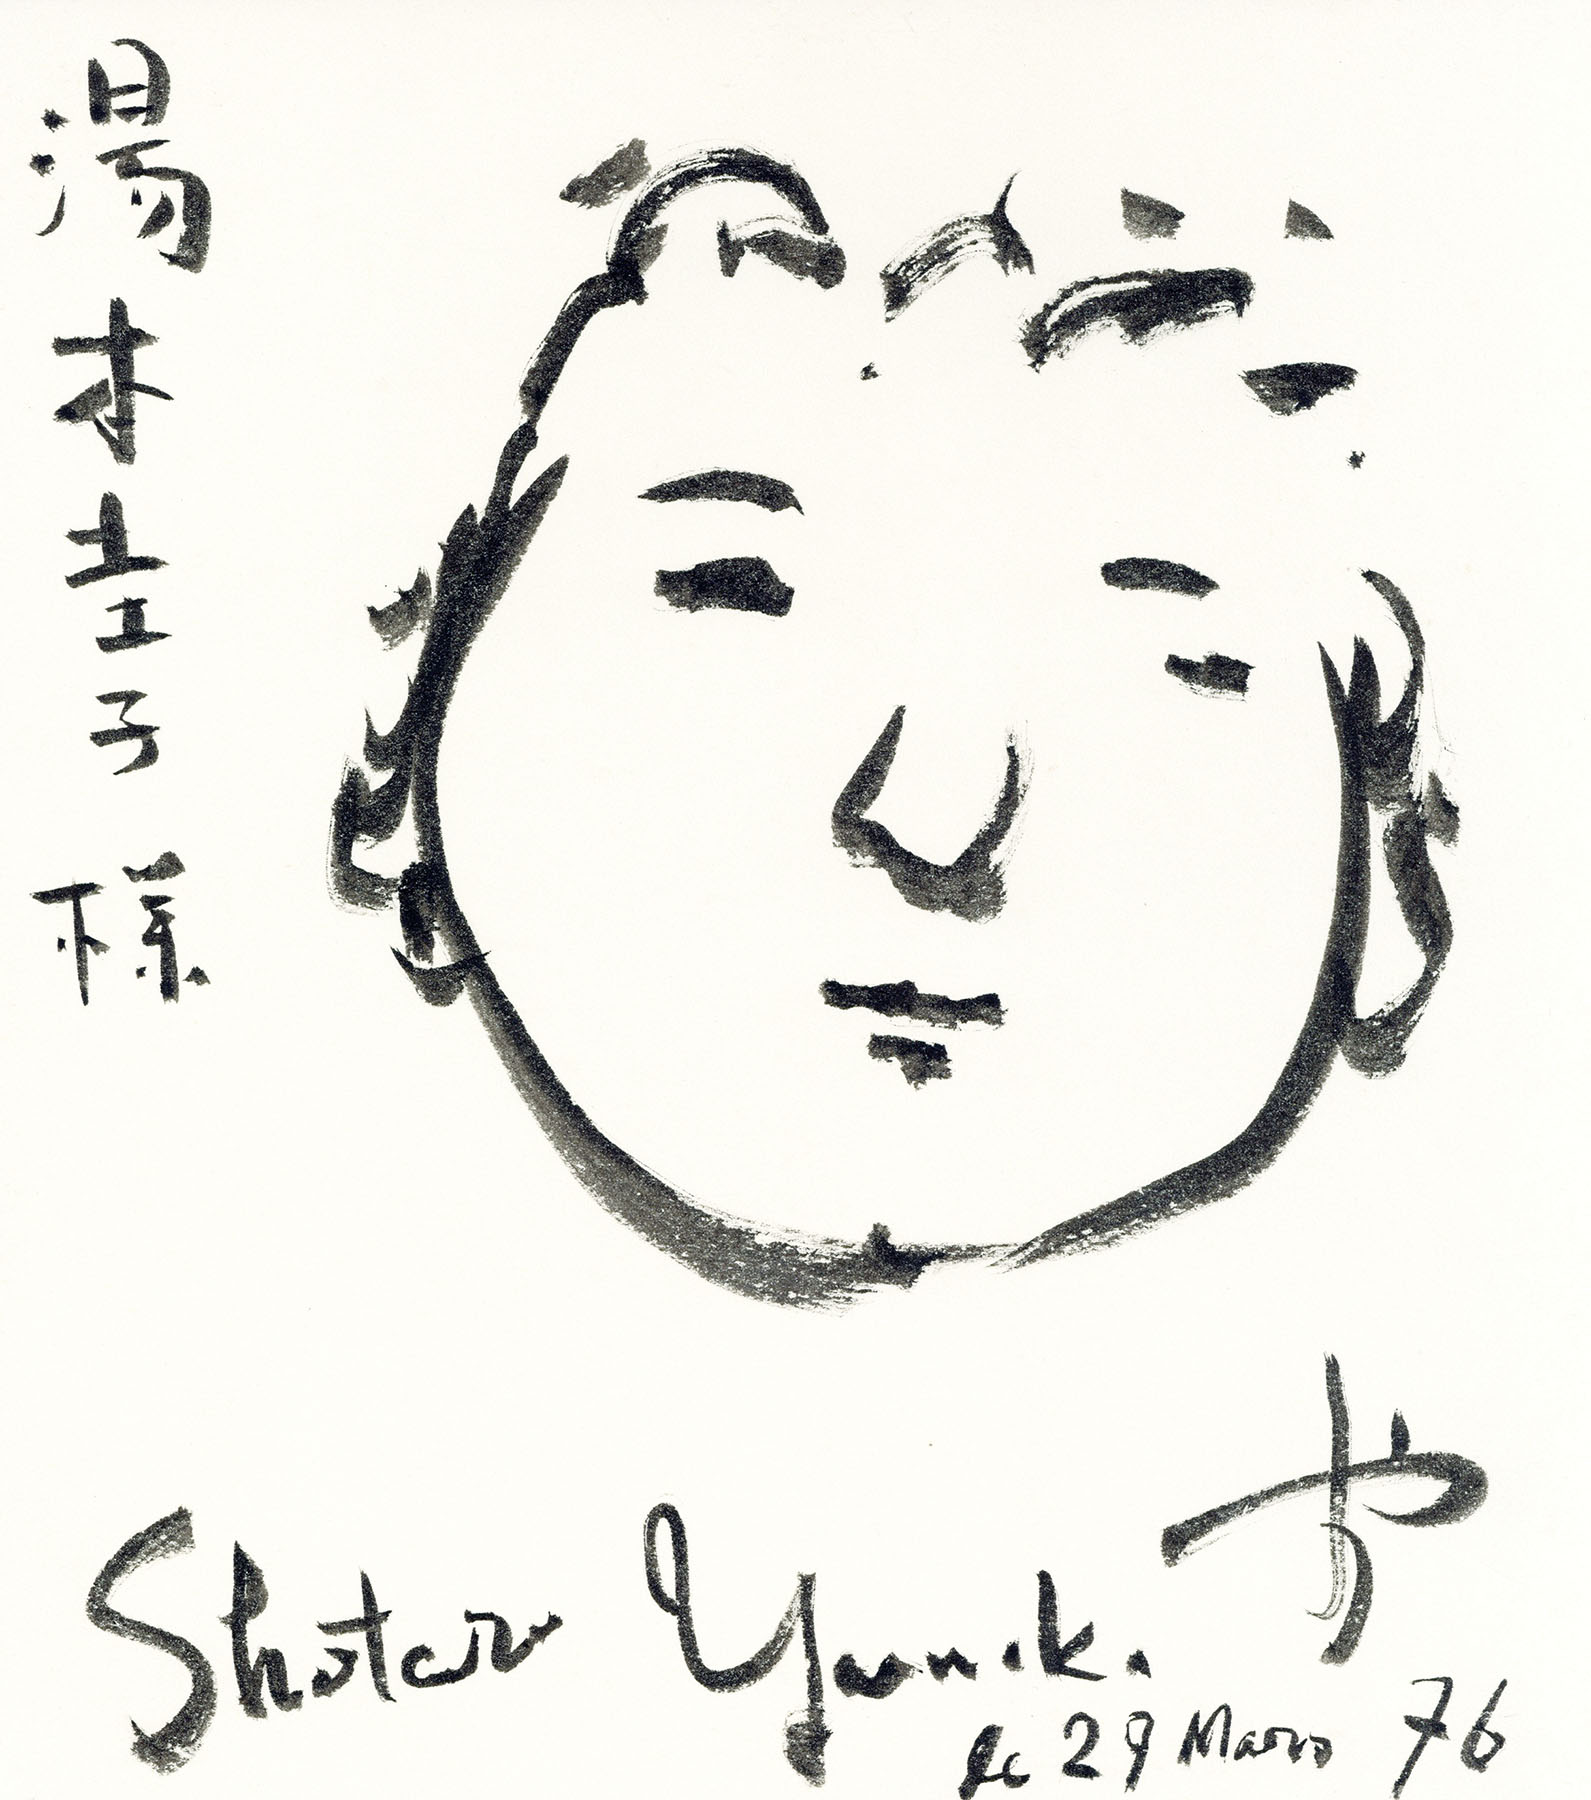 湯本圭子様
や
Shotaro Yasuoka
le 29 Mars 76